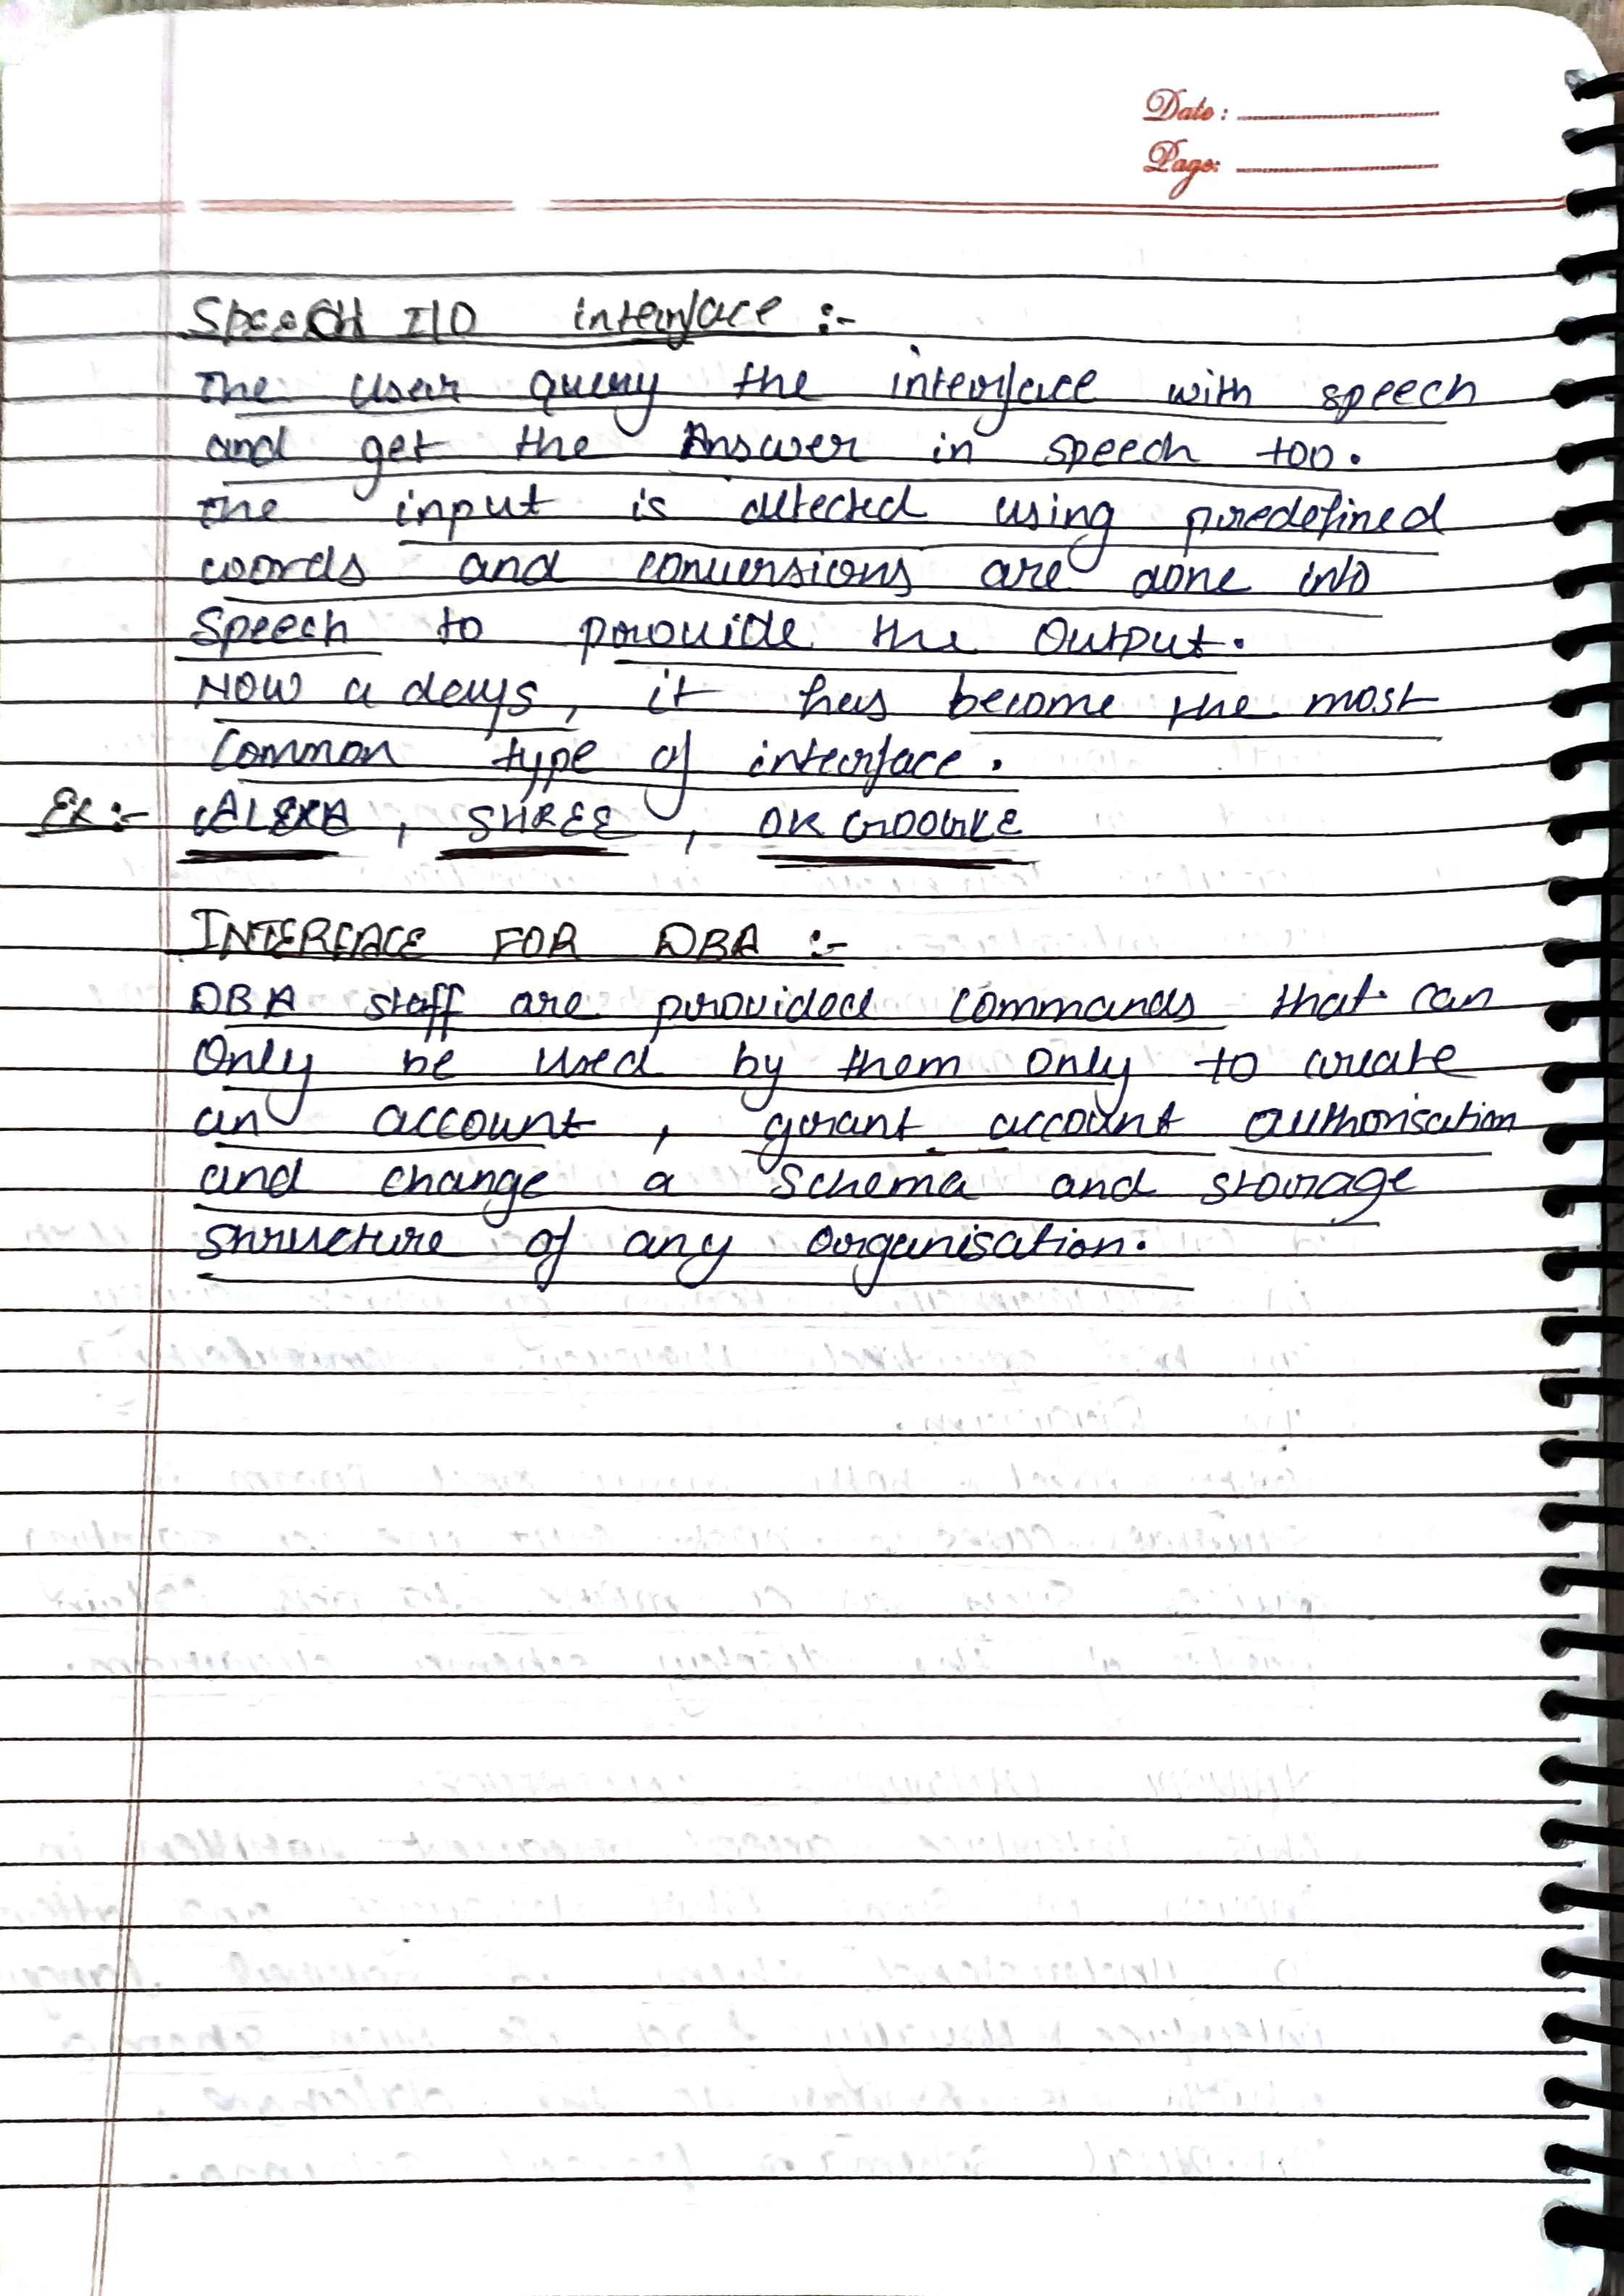 Date :
Page:
SpeeCH I/O interface :-
The user query the interface with speech
and get the Answer in speech too.
The input is detected using predefined
words and conversions are done into
Speech to provide the Output.
Now a days, it has become the most
Common type of interface.
Ex :- ALEXA , SHREE , OK GOOGLE
INTERFACE FOR DBA :-
DBA staff are provided commands that can
Only be used by them only to create
an account , grant account authorisation
and change a schema and storage
structure of any organisation.